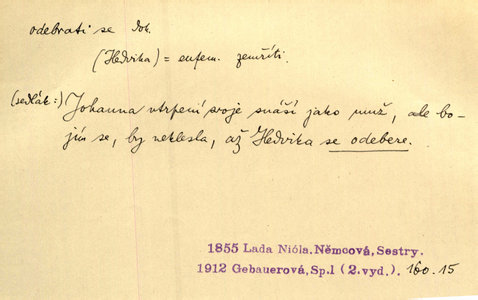 odebrati se dok.
(Hedvika) = eufem. zemříti.
(sedlák:) Johanna utrpení svoje snáší jako muž, ale bo-
jím se, by neklesla, až Hedvika se odebere.
1855 Lada Nióla. Němcová, Sestry.
1912 Gebauerová, Sp.I (2.vyd.). 160.15